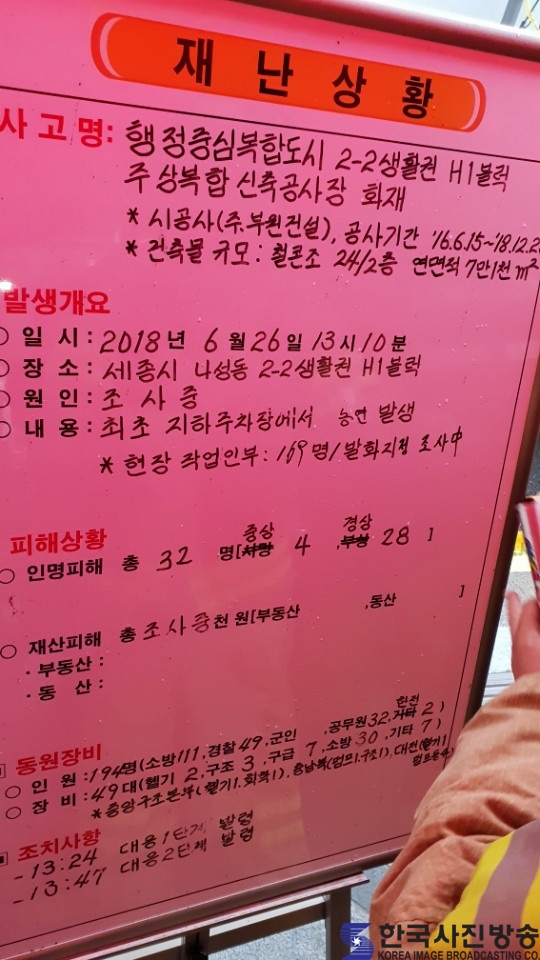 재난상황
사고명: 행정중심복합도시 2-2생활권 H1블럭
주상복합 신축공사장 화재
* 시공사(주.부원건설), 공사기간 '16.6.15~'18.12.2
* 건축물 규모: 철콘조 24/2층 연면적 7만1천㎡
발생개요
○ 일 시: 2018년 6월 26일 13시 10분
○ 장 소: 세종시 나성동 2-2생활권 H1블럭
○ 원 인: 조사중
○ 내 용: 최초 지하주차장에서 농연 발생
* 현장 작업인부: 169명/발화지점 조사中
피해상황
중상 경상
○ 인명피해 총 32 명[사망 4 ,부상 28 ]
○ 재산피해 총 조사중천원[부동산 ,동산 ]
· 부동산 :
· 동 산 :
동원장비
한전
○ 인 원: 194명(소방111,경찰49,군인 ,공무원32,기타2)
○ 장 비: 49대(헬기2,구조3,구급7,소방30,기타7)
*중앙구조본부(헬기1,회복1),충남북(펌프1,구조1),대전(헬기1
조치사항
- 13:24 대응1단계 발령
- 13:47 대응2단계 발령
한국사진방송
KOREA IMAGE BROADCASTING CO.